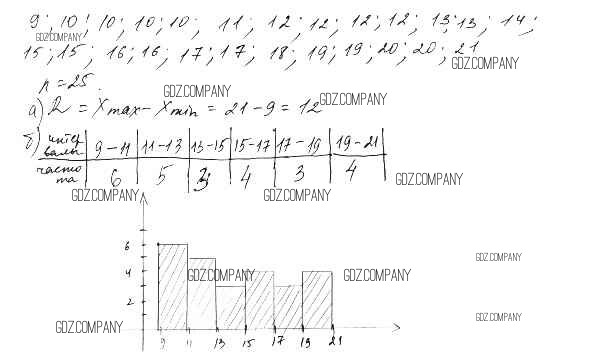 9; 10; 10; 10; 10; 11; 12; 12; 12; 12; 13; 13; 14;
GDZ.COMPANY
15; 15; 16; 16; 17; 17; 18; 19; 19; 20; 20; 21
GDZ.COMPANY
n = 25.
GDZ.COMPANY
а) R = Xmax - Xmin = 21 - 9 = 12
GDZ.COMPANY
б) интервалы 9-11 11-13 13-15 15-17 17-19 19-21
частота 6 5 3 4 3 4
GDZ.COMPANY
GDZ.COMPANY GDZ.COMPANY
6
GDZ.COMPANY
4
GDZ.COMPANY GDZ.COMPANY
2
GDZ.COMPANY
GDZ.COMPANY
9 11 13 15 17 19 21